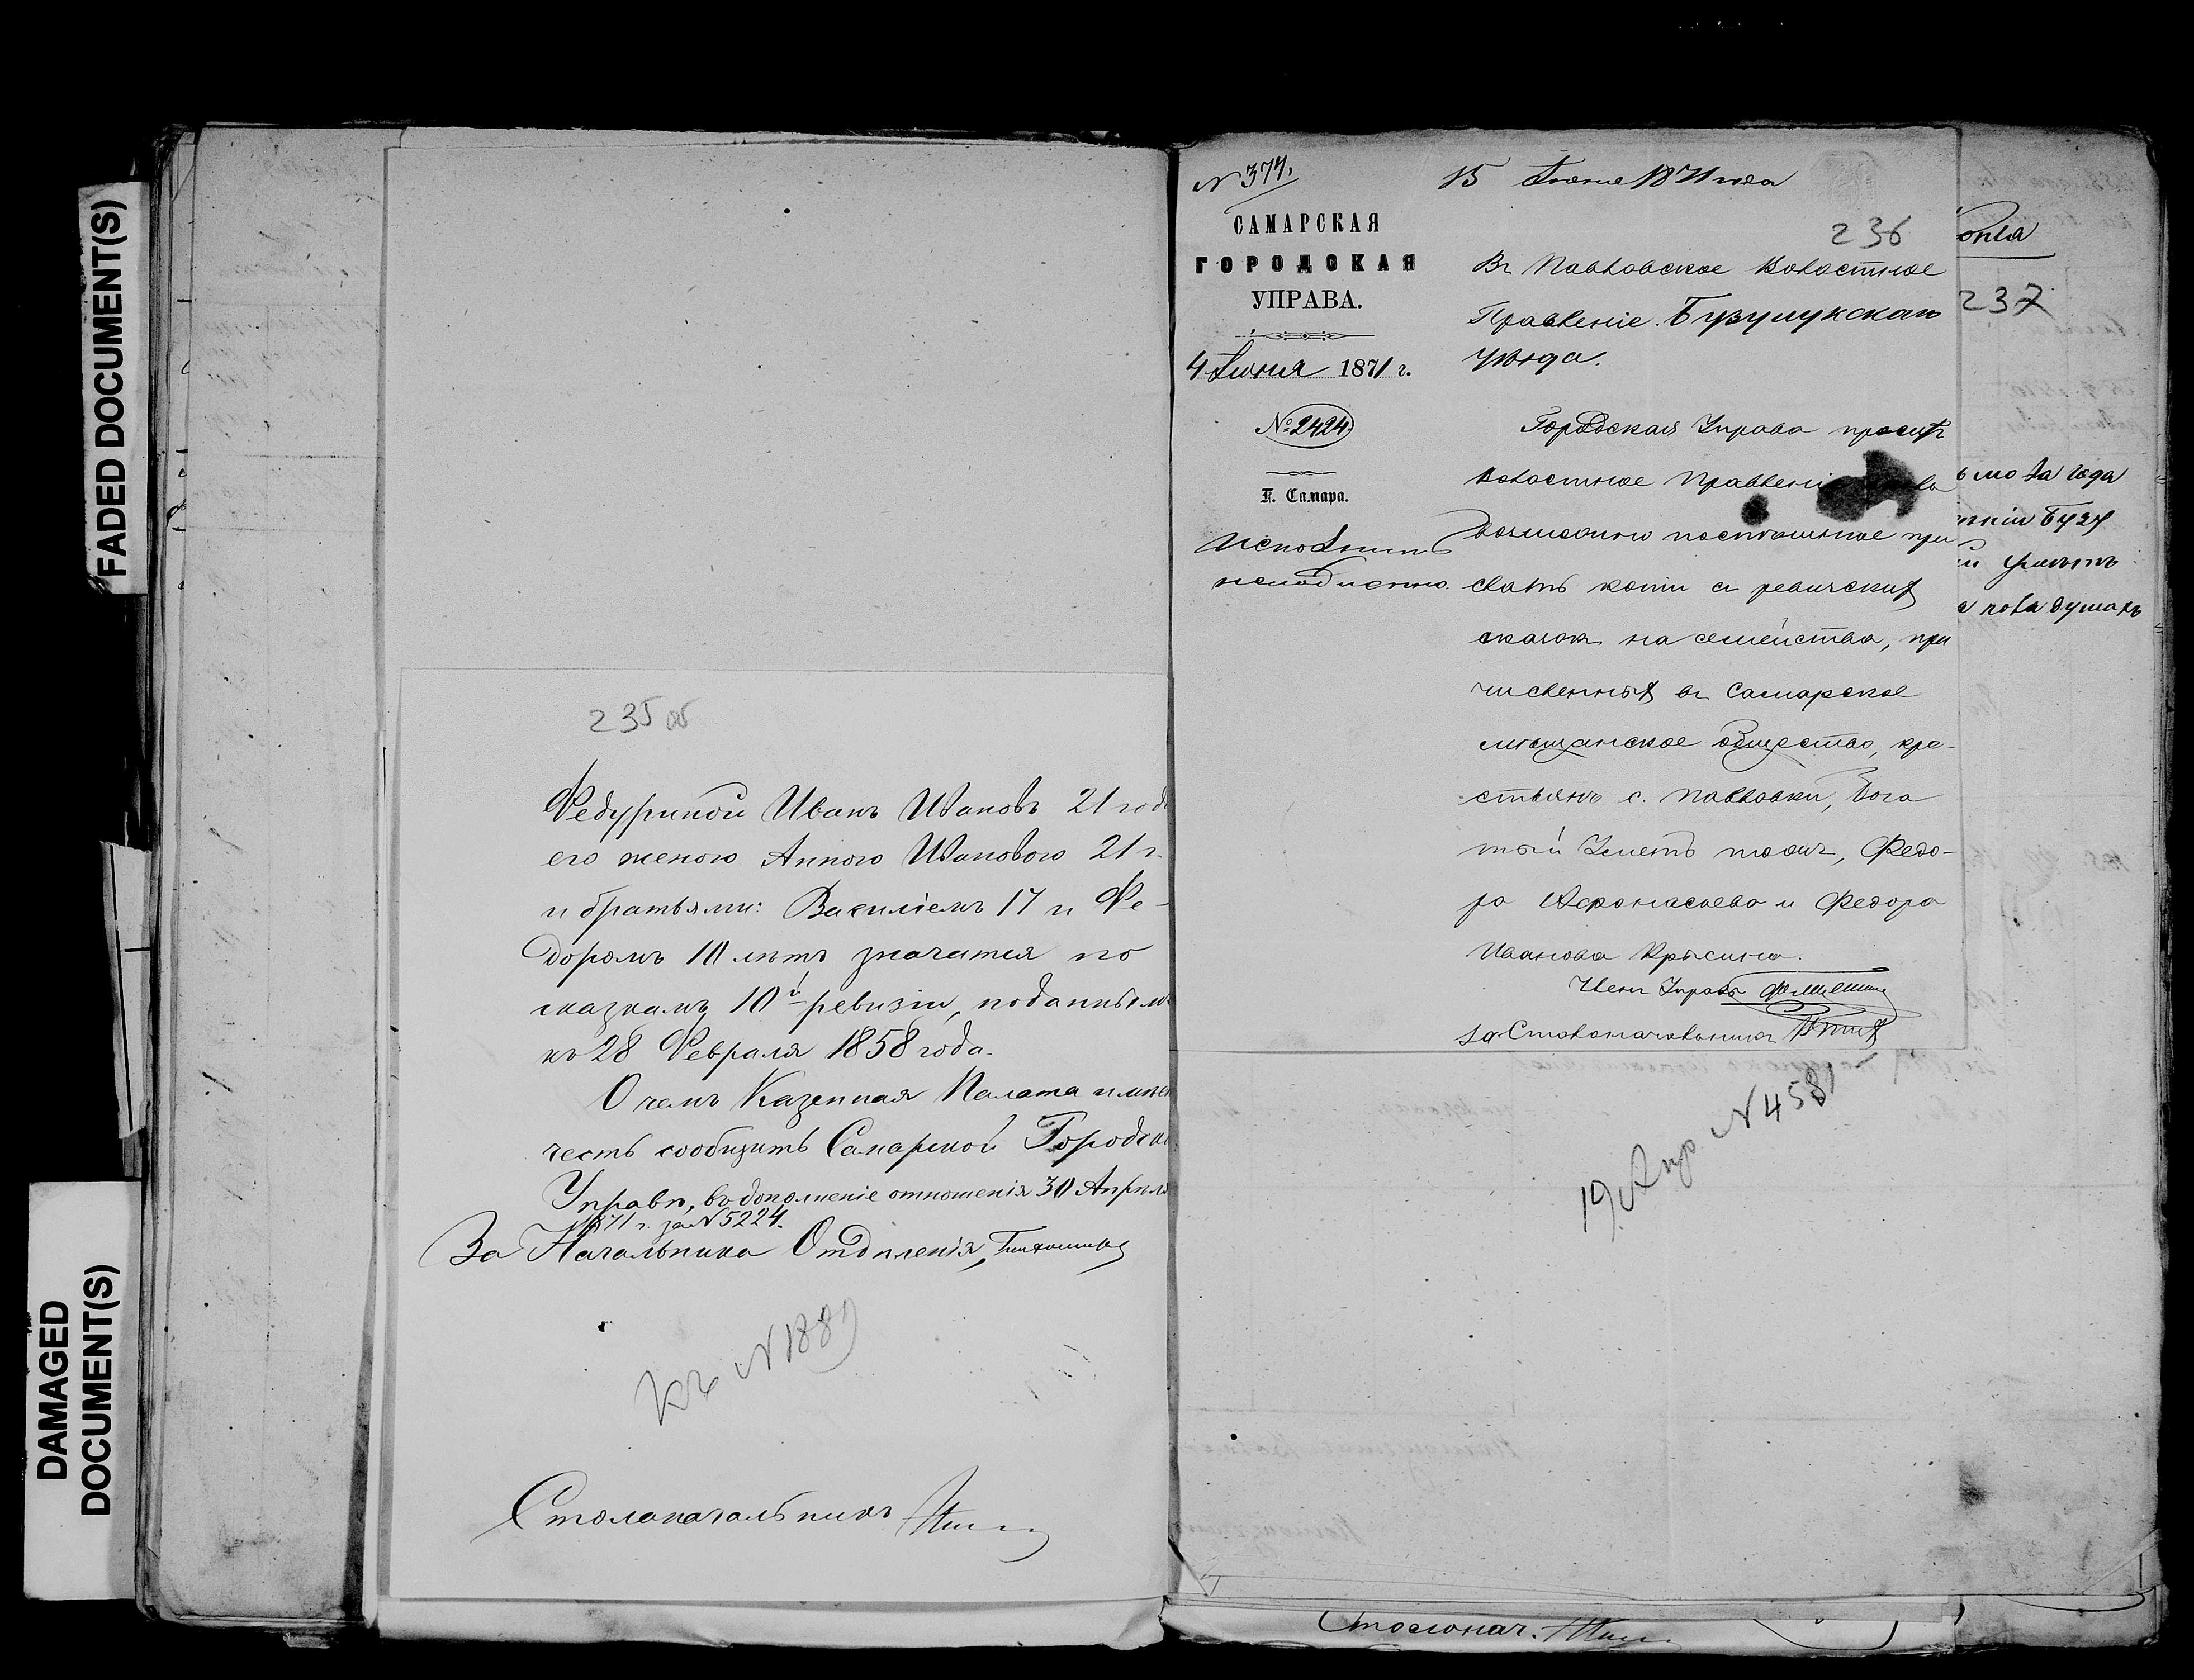 FADED DOCUMENT(S)
DAMAGED
DOCUMENT(S)
235 об
Федуриной Иванъ Ивановъ 21 год
его женою Анною Ивановою 21 г.
и братьями: Василіемъ 17 и Фе-
доромъ 10 лѣтъ значатся по
сказкамъ 10й ревизіи, поданнымъ
къ 28 Февраля 1858 года.
О чемъ Казенная Палата имѣе
честь сообщить Самарской Городск
Управѣ, въ дополненіе отношенія 30 Апрѣля
1871 г. за № 5224.
За Начальника Отдѣленія,
Къ № 1889
Столоначальникъ
№ 377.
15 Іюня 1871 года
236
САМАРСКАЯ
ГОРОДСКАЯ
УПРАВА.
4 Іюня 1871 г.
№ 2424.
Г. Самара.
Исполнить
немедленно.
Въ Павловское Волостное
Правленіе Бузулукскаго
уѣзда.
Городская Управа проситъ
Волостное Правленіе
возможно поспѣшнѣе при
слать копіи съ ревизскихъ
сказокъ на семейства, при
численныхъ въ Самарское
мѣщанское общество, кре-
стьянъ с. Павловки, Бога
тый Уметъ тожъ, Федо-
ра Афонасьева и Федора
Иванова Крысина.
Членъ Управы
за Столоначальника
19 Апр № 4581
опіа
237
ьмо за года
Бузу
уѣздъ
Столонач.